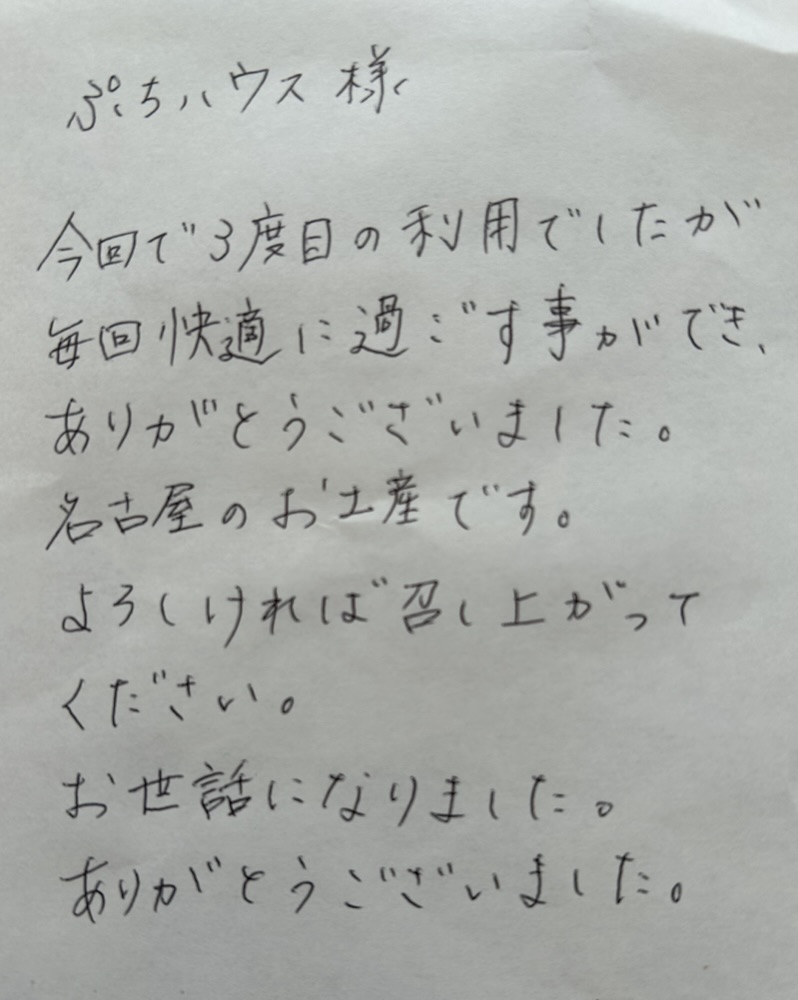 ぷちハウス様
今回で3度目の利用でしたが
毎回快適に過ごす事ができ、
ありがとうございました。
名古屋のお土産です。
よろしければ召し上がって
ください。
お世話になりました。
ありがとうございました。